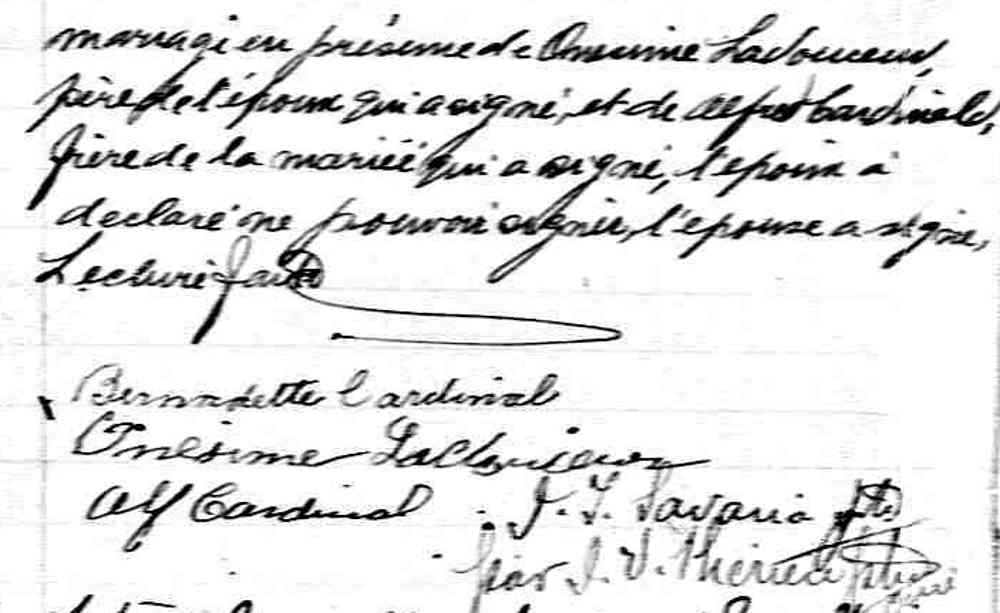 mariage en présence de Onesime Ladouceur,
père de l'époux qui a signé, et de Alfred Cardinald,
frère de la mariée qui a signé, l'epoux a
declaré ne pouvoir signer, l'epouse a signe,
Lecture faite
Bernadette Cardinal
Onésime
Alf Cardinal J. T. Savaria ptre
par J. V. Therien ptre